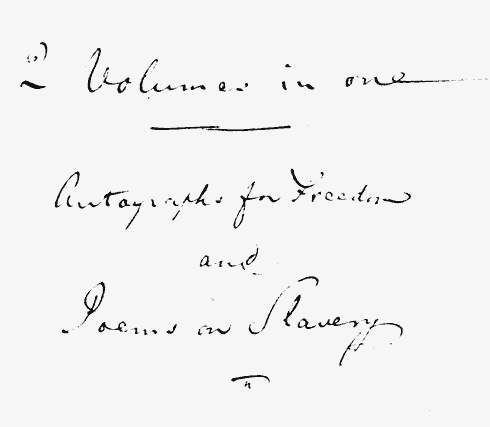 2 Volumes in one
Autographs for Freedom
and
Poems on Slavery